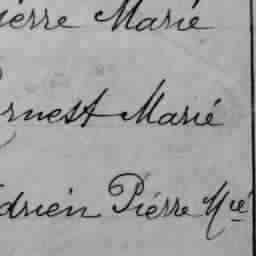 ierre Marié
rnest Marié
drien Piérre Mié